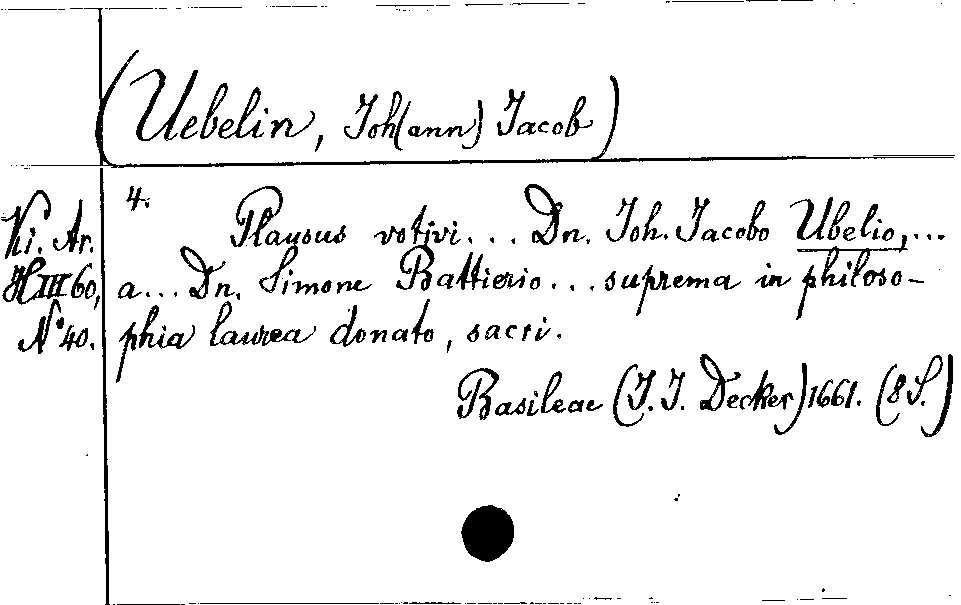 (Uebelin, Joh(ann) Jacob)
4.
Ki. Ar.
H III 60,
N° 40.
Plausus votivi... Dn. Joh. Jacobo Ubelio,...
a... Dn. Simone Battierio... suprema in philoso-
phia laurea donato, sacri.
Basileae (J. J. Decker) 1661. (8 S.)